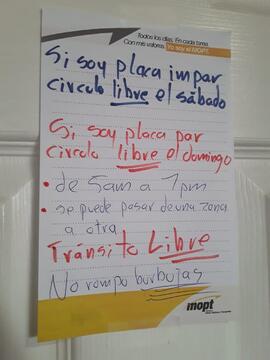 Todos los días. En cada tarea
Con mis valores. Yo soy el MOPT.
Si soy placa impar
circulo libre el sábado
Si soy placa par
circulo libre el domingo
• de 5am a 7pm
• se puede pasar de una zona
a otra
Tránsito Libre
No rompo burbujas
mopt